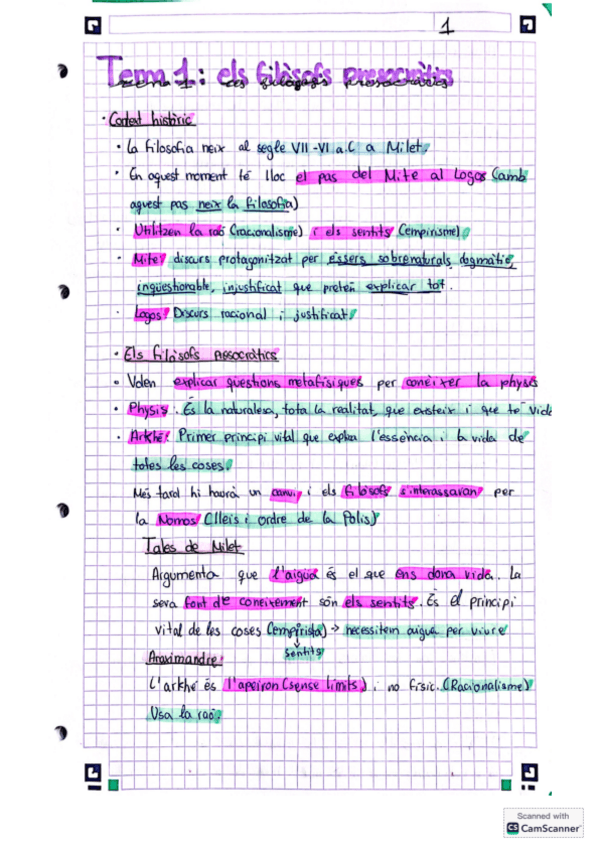 1
Tema 1: els filòsofs presocràtics
· Context històric
· La filosofia neix al segle VII-VI a.C a Milet.
· En aquest moment té lloc el pas del Mite al Logos (amb
aquest pas neix la filosofia)
· Utilitzen la raó (racionalisme) i els sentits (empirisme)
· Mite: discurs protagonitzat per éssers sobrenaturals, dogmàtic,
inqüestionable, injustificat que pretén explicar tot.
· Logos: Discurs racional i justificat.
· Els filòsofs Presocràtics
· Volen explicar qüestions metafísiques per conèixer la physis
· Physis: És la naturalesa, tota la realitat, que existeix i que té vida
· Arkhé: Primer principi vital que explica l'essència i la vida de
totes les coses.
Més tard hi haurà un canvi i els filòsofs s'interessaran per
la Nomos (lleis i ordre de la Polis)
Tales de Milet
Argumenta que l'aigua és el que ens dona vida. La
seva font de coneixement són els sentits. És el principi
vital de les coses (empirista) → necessitem aigua per viure
sentits
Anaximandre:
L'arkhé és l'apeiron (sense límits) i no físic. (Racionalisme)
Usa la raó.
Scanned with
CS CamScanner